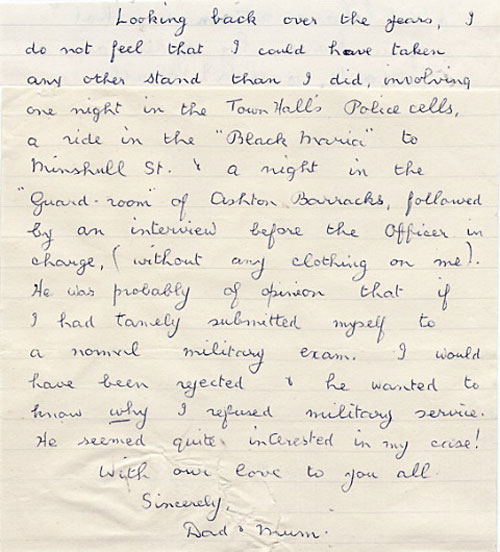 Looking back over the years, I
do not feel that I could have taken
any other stand than I did, involving
one night in the Town Hall's Police cells,
a ride in the "Black Maria" to
Minshull St. & a night in the
"Guard-room" of Ashton Barracks, followed
by an interview before the Officer in
charge, (without any clothing on me).
He was probably of opinion that if
I had tamely submitted myself to
a normal military exam. I would
have been rejected & he wanted to
know why I refused military service.
He seemed quite interested in my case!
With our love to you all.
Sincerely,
Dad & Mum.